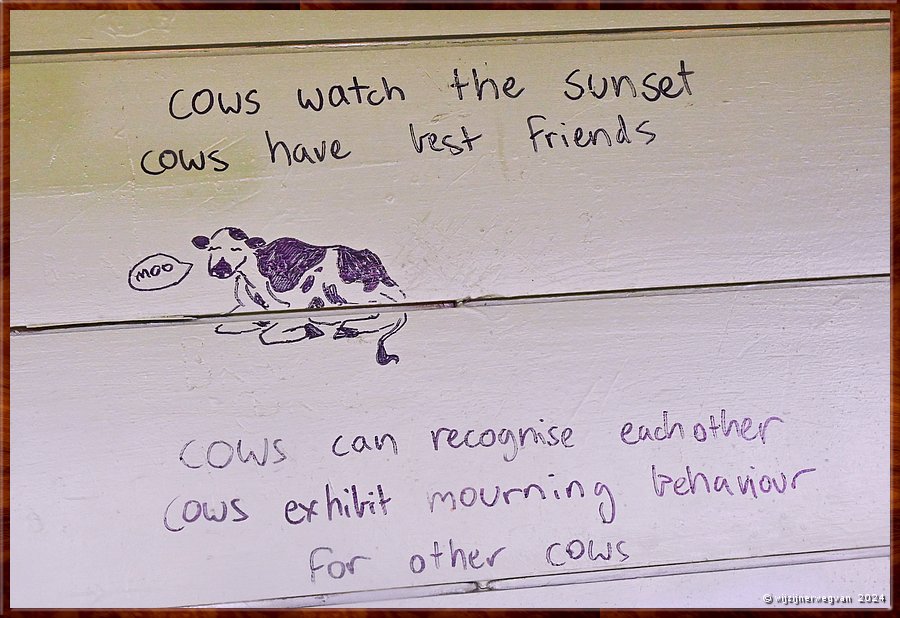 cows watch the sunset
cows have best friends
MOO
cows can recognise eachother
cows exhibit mourning behaviour
for other cows
© wijzijnerwegvan 2024